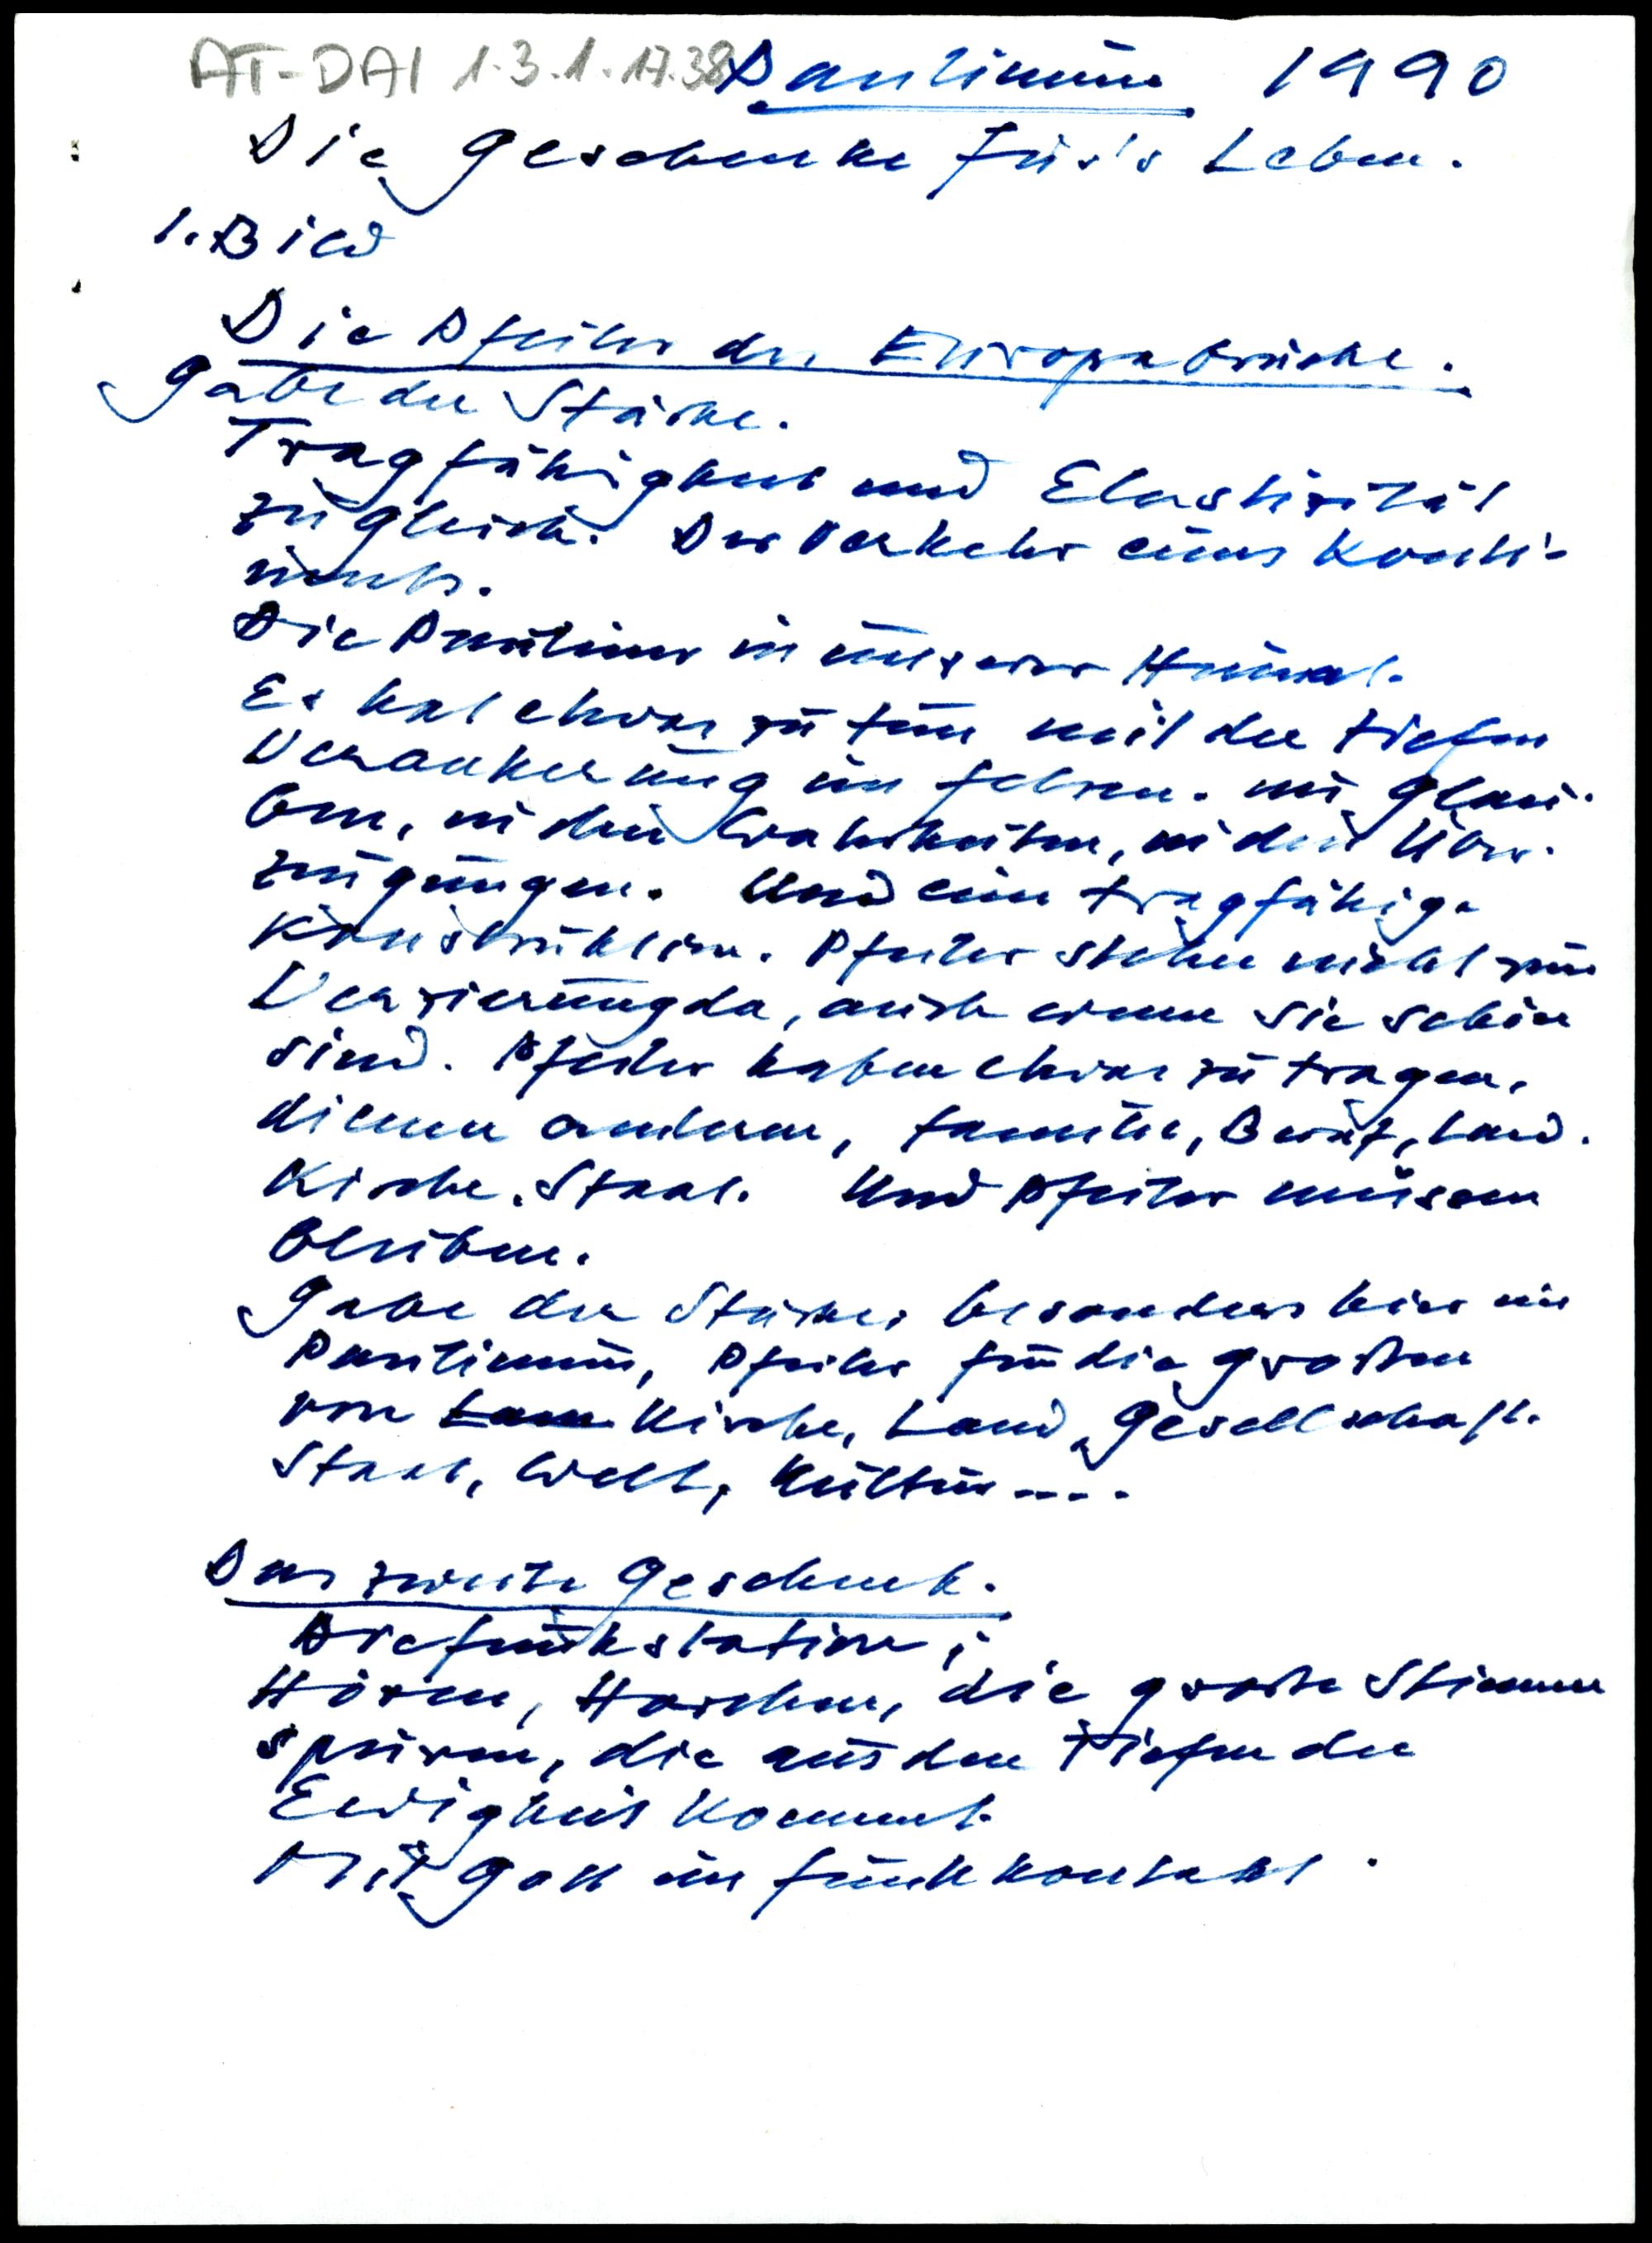 AT-DAI 1.3.1.17.38 Paulinum 1990
Die Geschenke für's Leben.
1. Bild
Die Pfeiler der Europabrücke.
Gabe der Stärke.
Tragfähigkeit und Elastizität
zugleich. Der Verkehr eines Konti-
nents.
Die Pauliner in unserer Heimat.
Es hat etwas zu tun mit der tiefen
Verankerung im Felsen. im Glau-
ben, in den Wahrheiten, in den Über-
zeugungen. Und eine tragfähige
Konstruktion. Pfeiler stehen nicht zur
Verzierung da, auch wenn sie schön
sind. Pfeiler haben etwas zu tragen,
dienen anderen, Familie, Beruf, Land.
Kirche. Staat. Und Pfeiler müssen
bleiben.
Gabe der Stärke, besonders hier im
Paulinum, Pfeiler für die großen
von Kirche, Land, Gesellschaft.
Staat, Welt, Kultur....
Das zweite Geschenk.
Die Funkstation;
Hören, Horchen, die große Stimme
spüren, die aus den Tiefen der
Ewigkeit kommt.
Mit Gott im Funkkontakt.